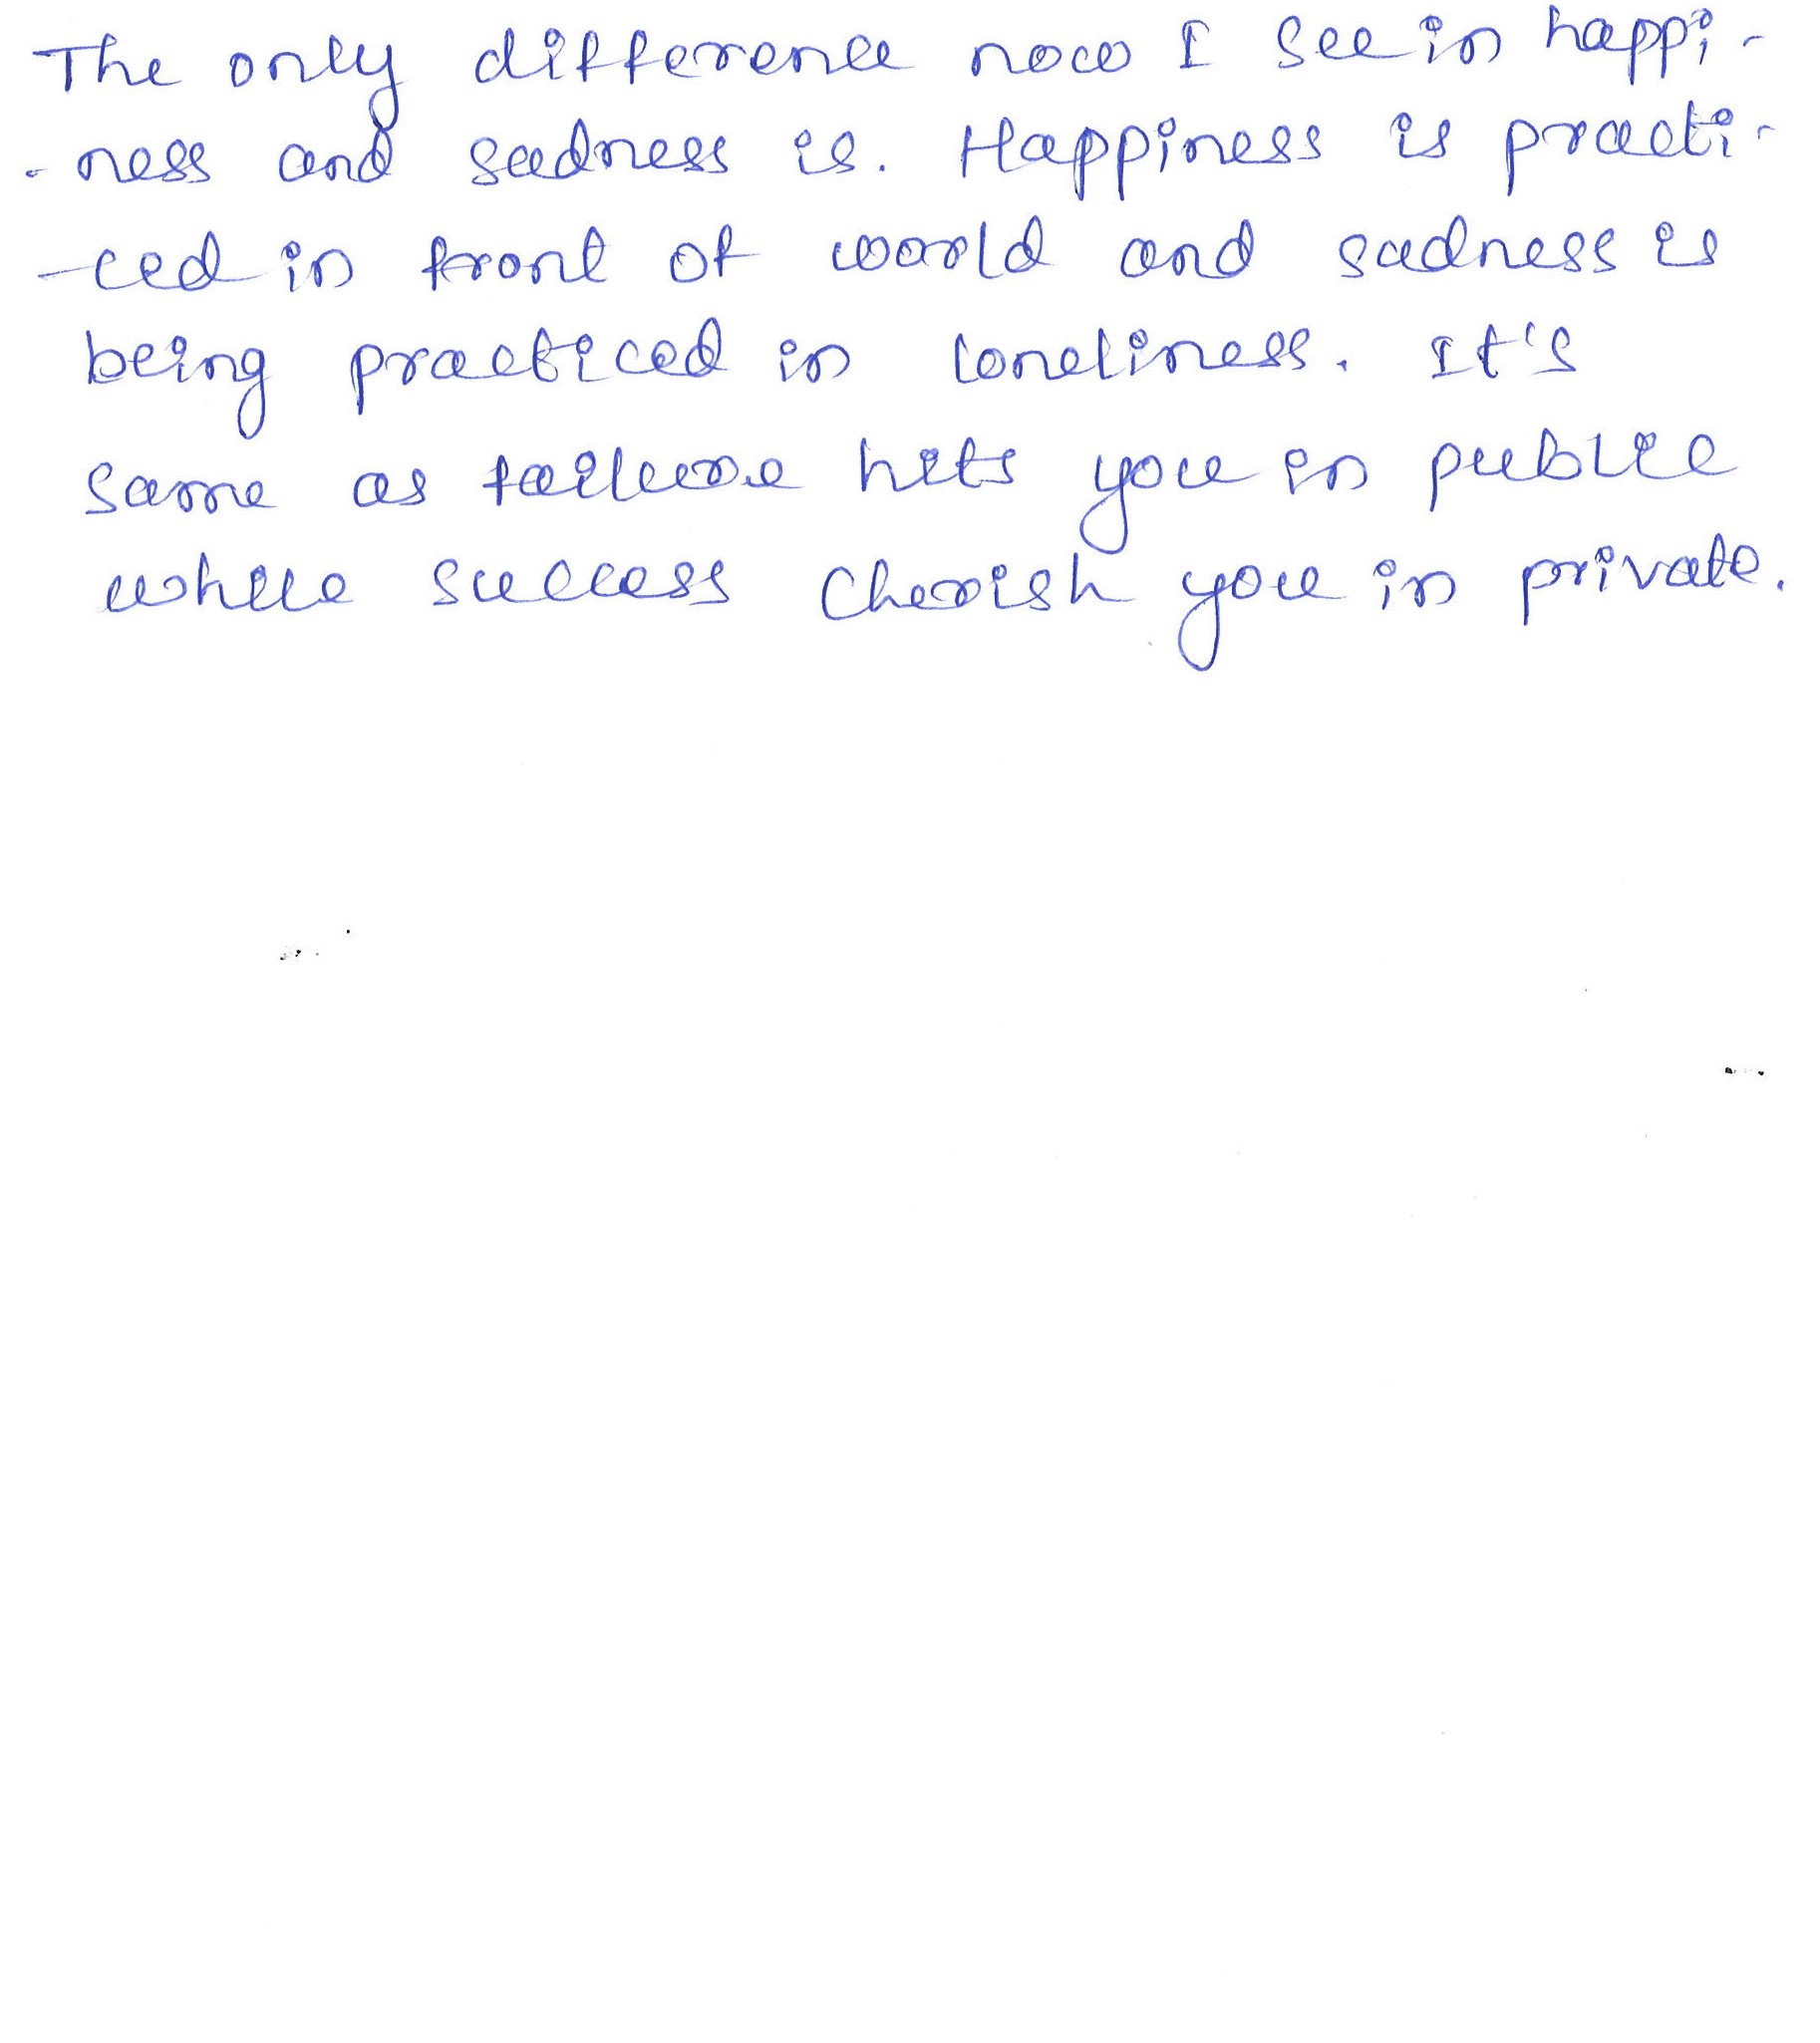 The only difference now I see in happi-
-ness and sadness is. Happiness is practi-
-ced in front of world and sadness is
being practiced in loneliness. It's
same as failure hits you in public
while success cherish you in private.